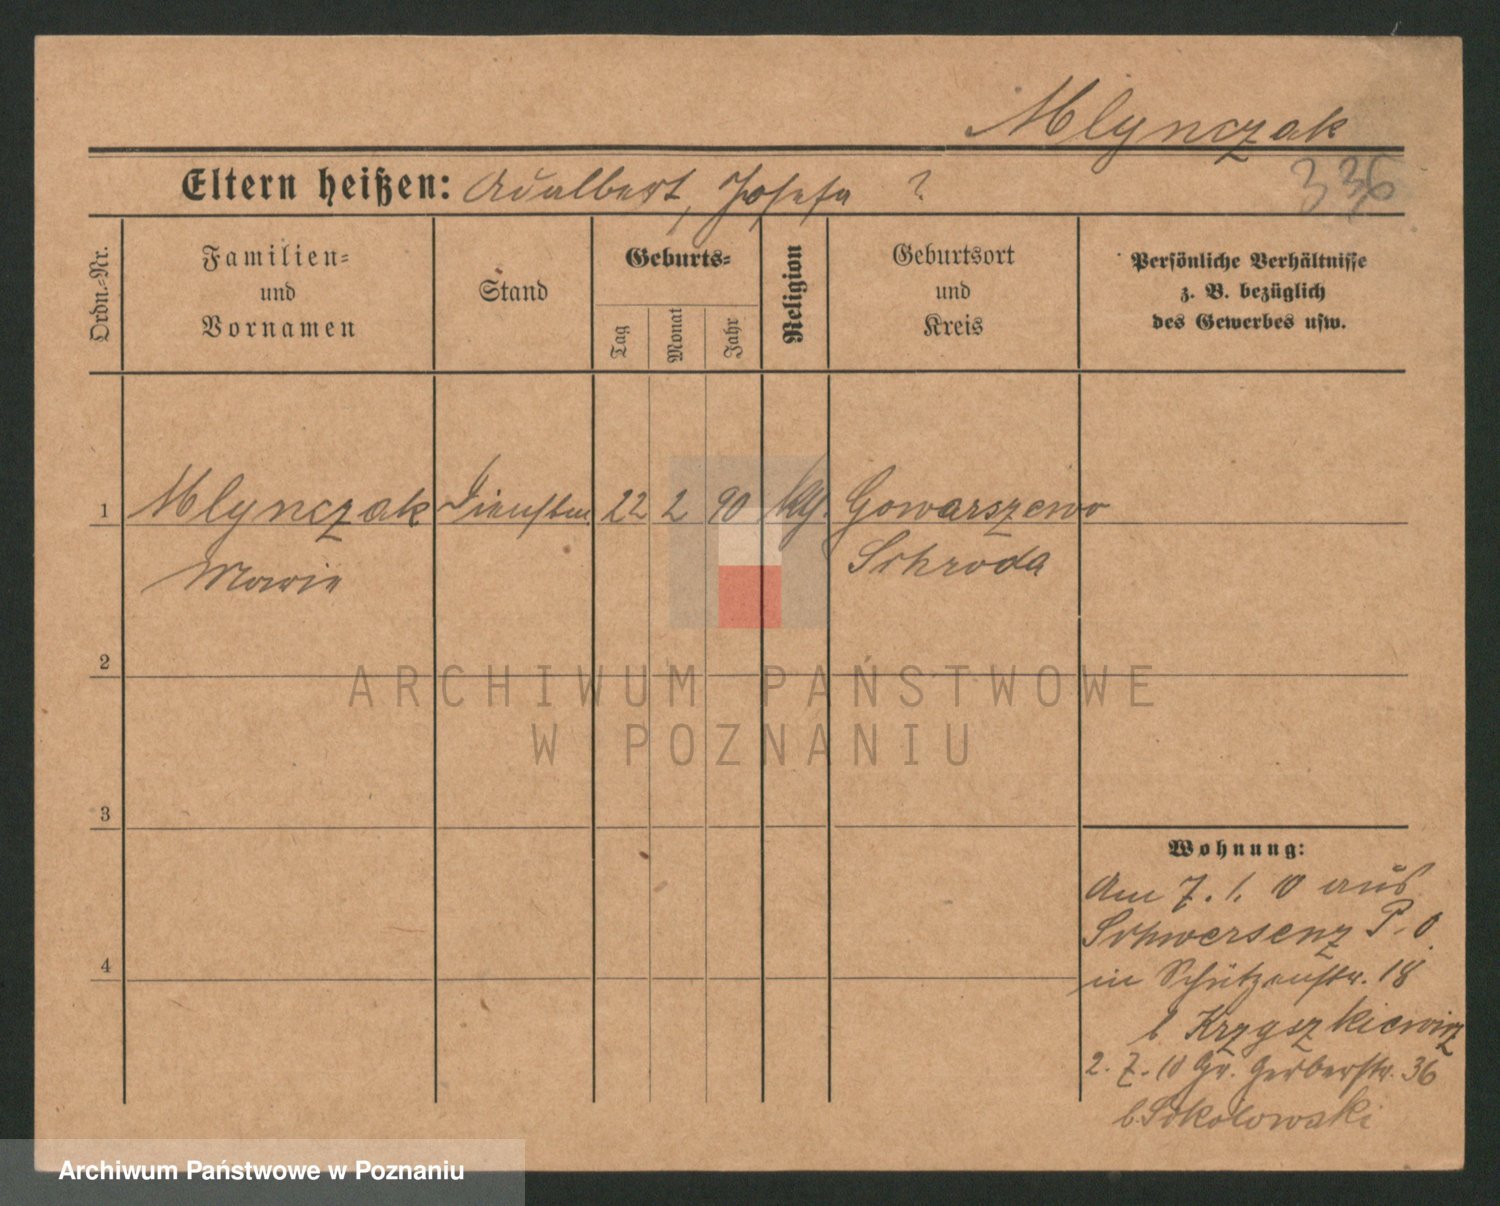 Mlynczak
336
Eltern heißen: Adalbert, Josefa ?
Ordn.-Nr.
Familien-
und
Vornamen
Stand
Geburts-
Tag
Monat
Jahr
Religion
Geburtsort
und
Kreis
Persönliche Verhältnisse
z. B. bezüglich
des Gewerbes usw.
1 Mlynczak Dienstm. 22 2 90 kath. Gowarszewo
Marie Schroda
2
3
4
Wohnung:
Am 7. 1. 10 aus
Schwersenz P. O.
in Schützenstr. 18
b Krzyszkiewicz
2. 7. 10 Gr. Gerberstr. 36
b. Sokolowski
ARCHIWUM PAŃSTWOWE
W POZNANIU
Archiwum Państwowe w Poznaniu